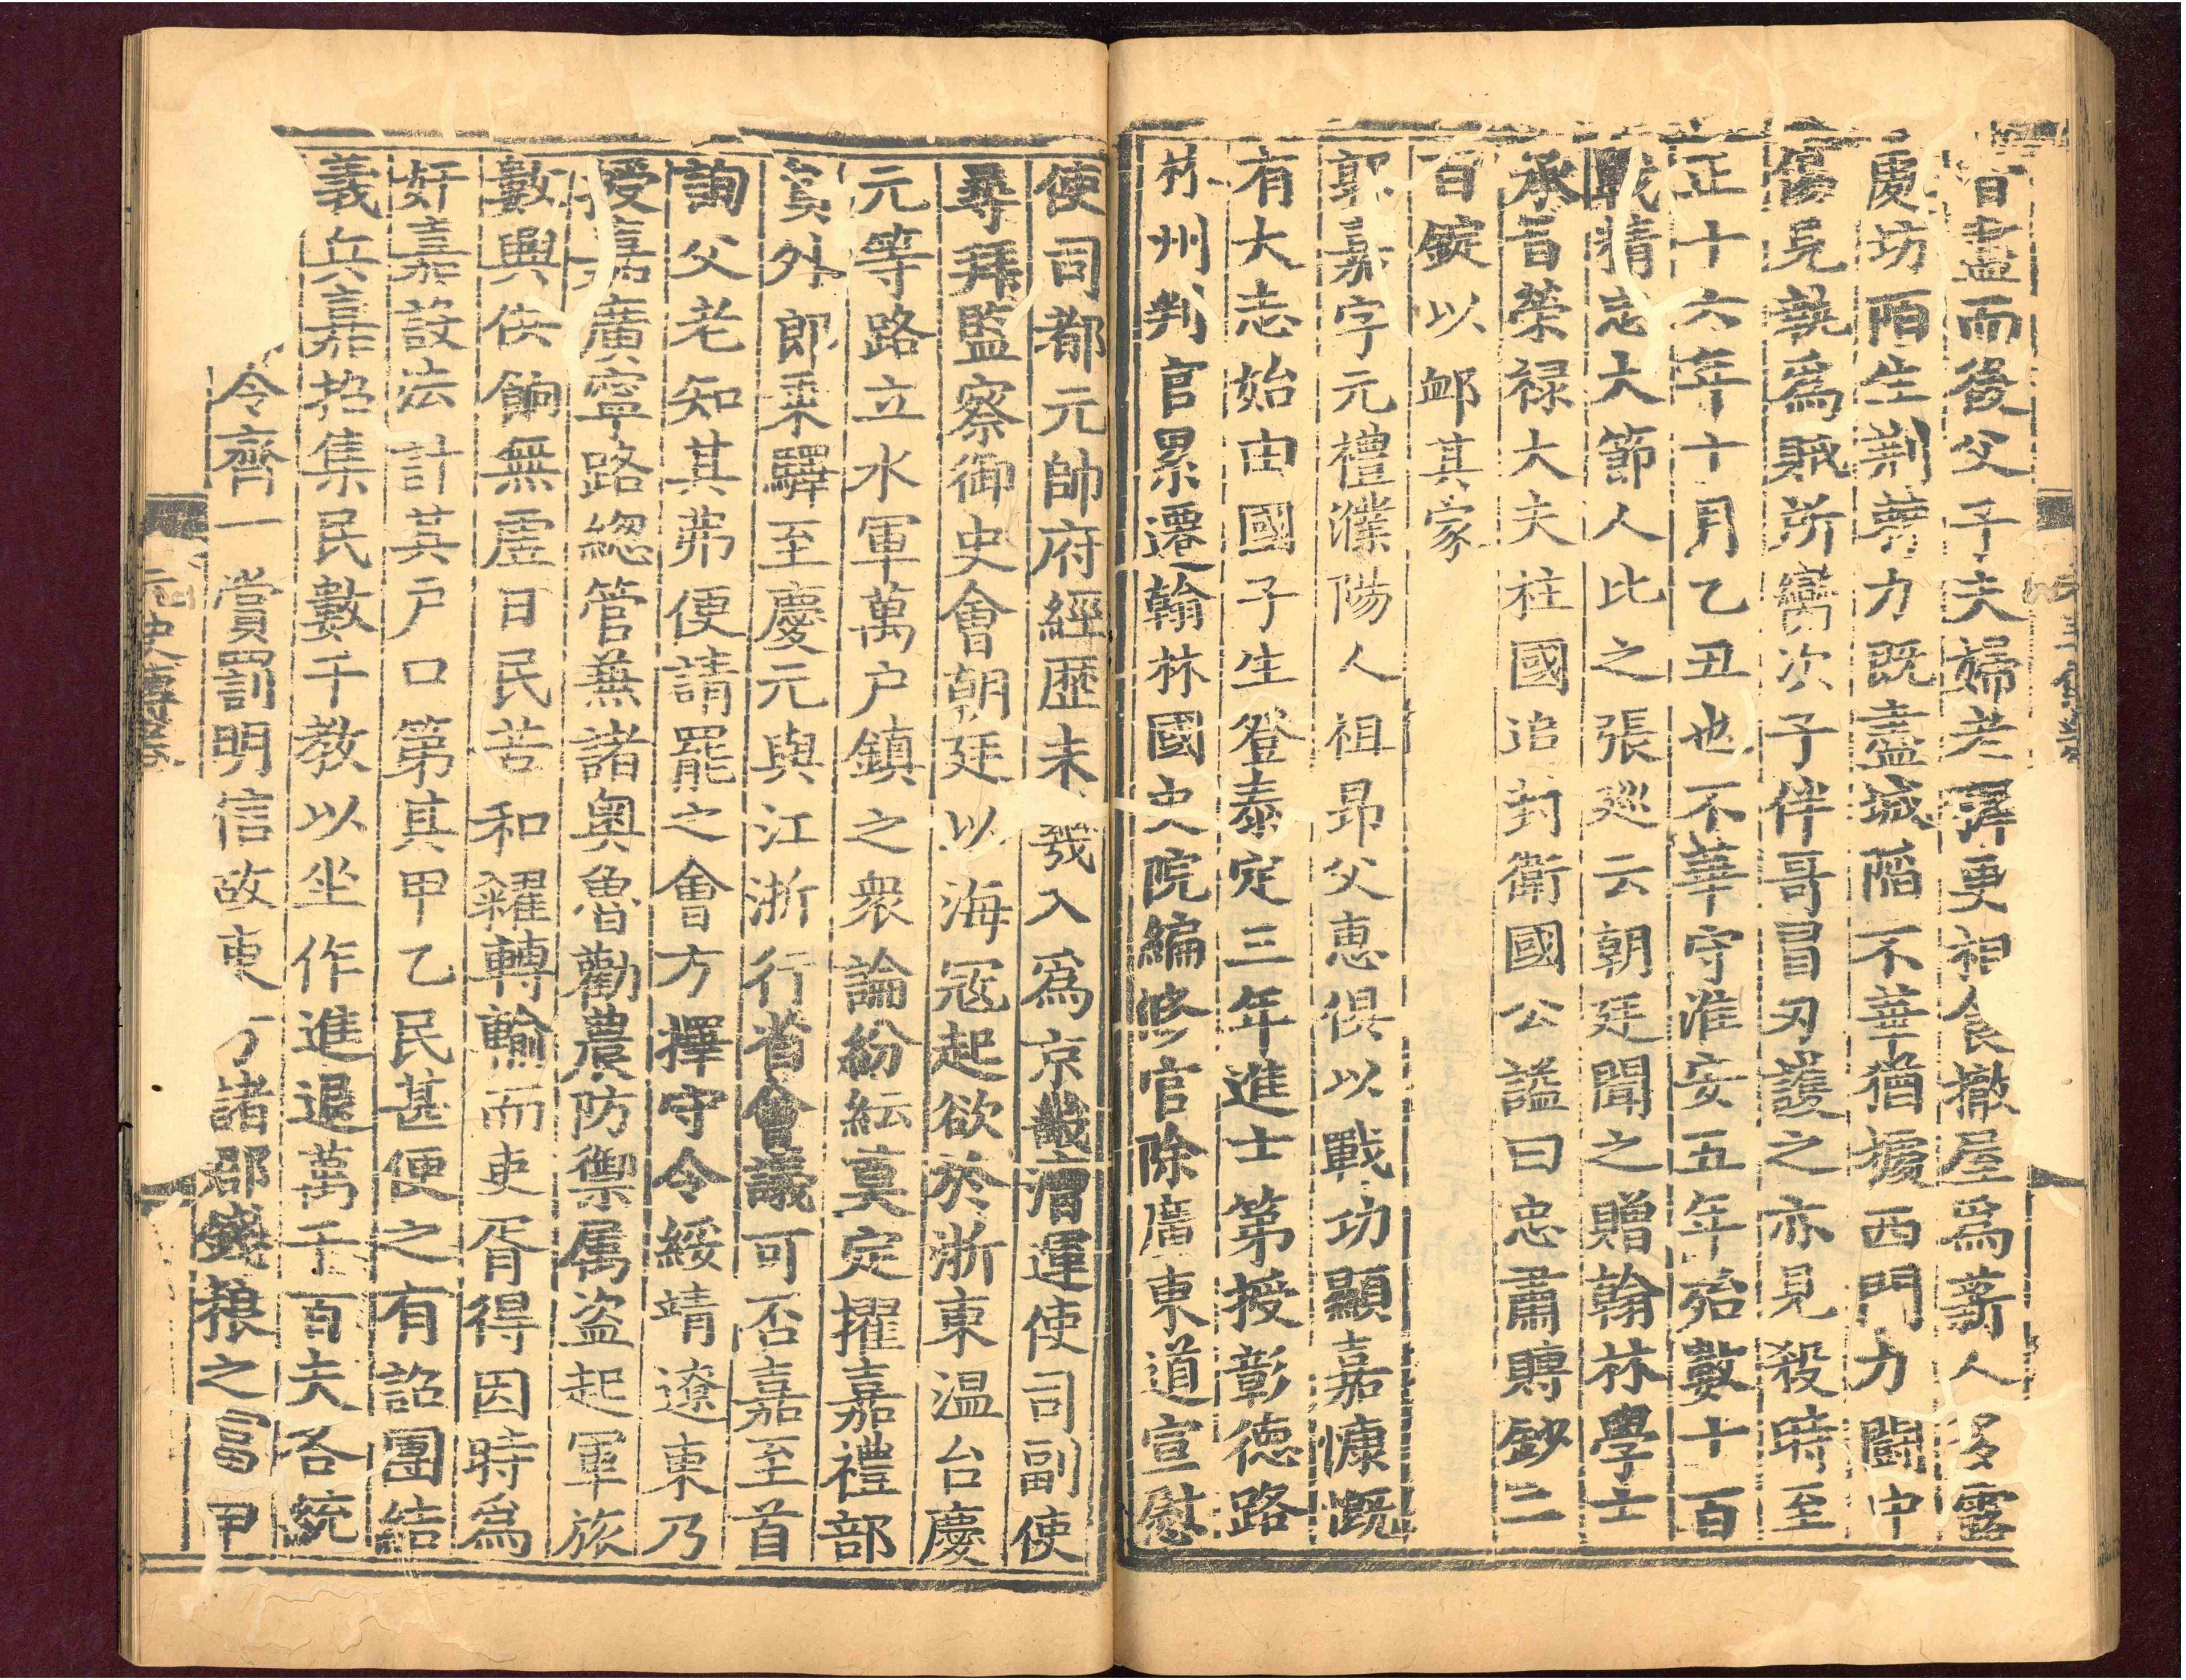 皆盡而後父子夫婦老稺更相食撤屋爲薪人多露
處坊陌生荆棘力既盡城陷不華猶據西門力鬬中
傷見執爲賊所臠次子伴哥冒刃護之亦見殺時至
正十六年十月乙丑也不華守淮安五年殆數十百
戰精忠大節人比之張廵云朝廷聞之贈翰林學士
承旨榮禄大夫柱國追封衛國公謚曰忠肅賻鈔二
百錠以䘏其家
郭嘉字元禮濮陽人祖昂父惠俱以戰功顯嘉慷慨
有大志始由國子生登泰定三年進士第授彰德路
林州判官累遷翰林國史院編修官除廣東道宣慰
使司都元帥府經歷未㡬入爲京畿漕運使司副使
尋拜監察御史會朝廷以海㓂起欲於浙東温台慶
元等路立水軍萬户鎮之衆論紛紜莫定擢嘉禮部
負外郎乗驛至慶元與江浙行省會議可否嘉至首
詢父老知其弗便請罷之會方擇守令綏靖遼東乃
授嘉廣寧路緫管兼諸奥魯勸農防禦属盗起軍旅
數興供餉無虗日民苦和糴轉輸而吏胥得因時爲
奸嘉設法計其户口第其甲乙民甚便之有詔團結
義兵嘉招集民數千教以坐作進退萬千百夫各統
令齊一賞罰明信故東諸郡錢粮之富甲
元史傳